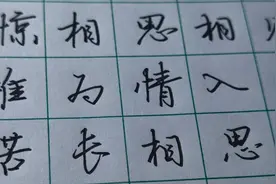 惊相思相
为情入
苦长相思